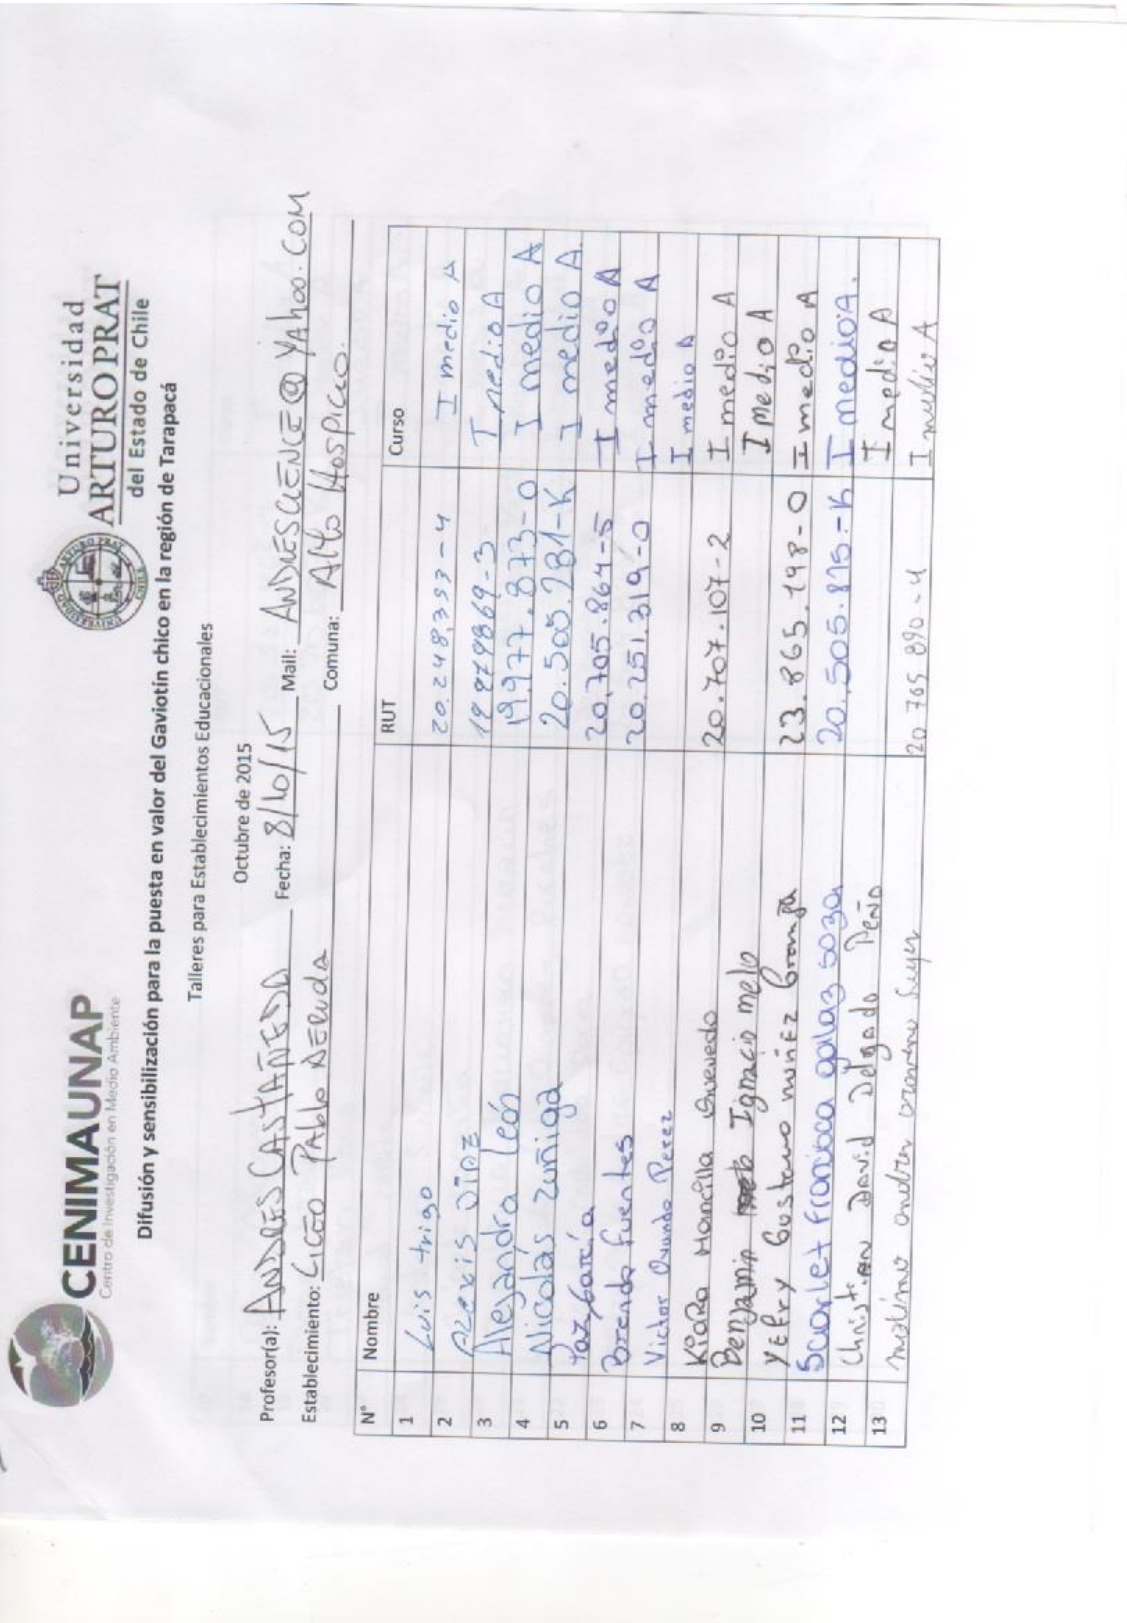 CENIMAUNAP
Centro de Investigación en Medio Ambiente
Universidad
ARTURO PRAT
del Estado de Chile
Difusión y sensibilización para la puesta en valor del Gaviotín chico en la región de Tarapacá
Talleres para Establecimientos Educacionales
Octubre de 2015
Profesor(a): ANDRES CASTAÑEDA Fecha: 8/10/15 Mail: ANDRESCIENCE@YAhoo.COM
Establecimiento: LICEO PAblo NERUDA Comuna: Alto Hospicio.
N° Nombre RUT Curso
1 Luis trigo 20.248,353-4 I medio A
2 Alexis Díaz I medio A
3 Alejandra León 19.977.873-0 I medio A
4 Nicolás Zuñiga 20.505.281-K I medio A.
5 Paz García 20.705.864-5 I medio A
6 Brenda Fuentes 20.251.319-0 I medio A
7 Victor Ovando Perez I medio A
8 Kiara Mancilla Quevedo 20.707.107-2 I medio A
9 Benjamin Ignacio melo I medio A
10 Yefry Gustavo muñez 23.865.198-0 I medio A
11 Scarlet Francisca galaz soza 20.505.815-K I medio A.
12 Christian David Delgado Peña I medio A
13 20 765 890-4 I medio A